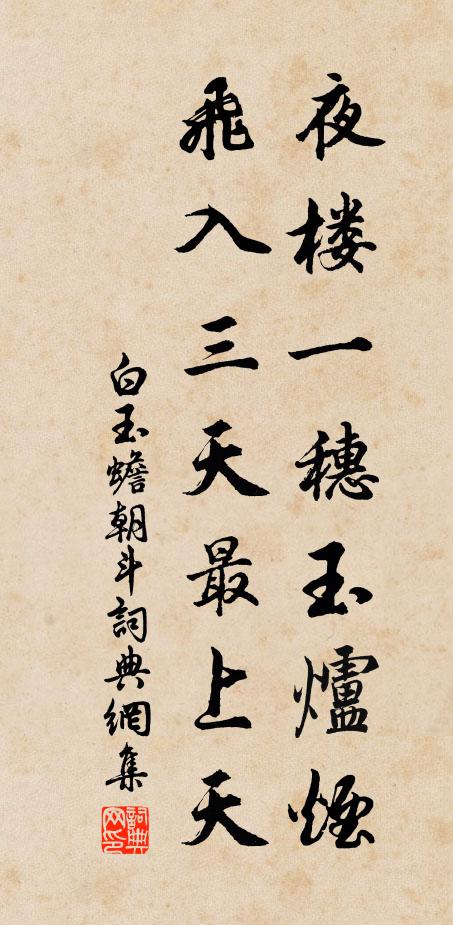 夜楼一穗玉爐煙
飛入三天最上天
白玉蟾朝斗詞典網集
詞典网印